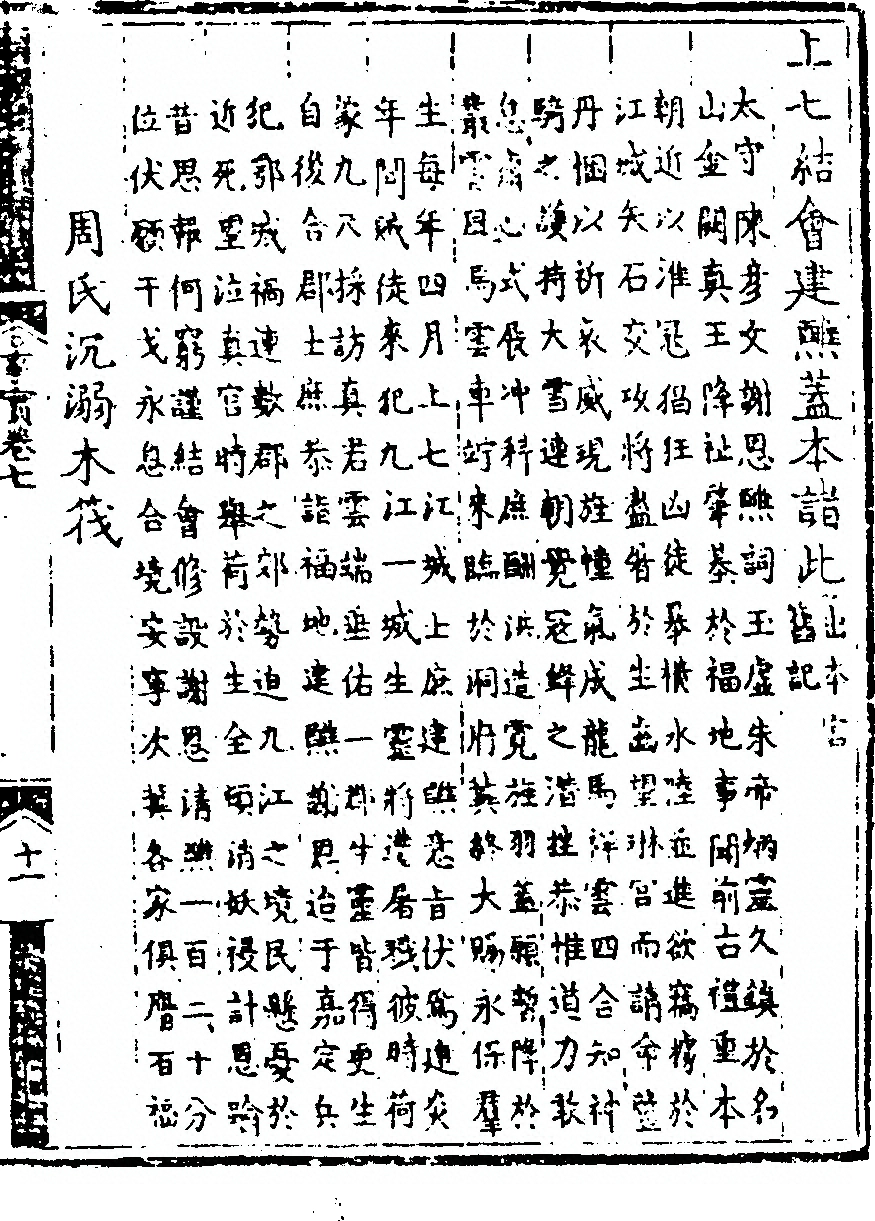 上七結會建醮蓋本諸此出本宮舊記
太守陳彥文謝恩醮詞玉虛朱帝炳靈久鎮於名
山金闕真王降祉肇基於福地事聞前古禮重本
朝近以淮冦猖狂凶徒暴橫水陸並進欲竊據於
江城矢石交攻將盡於生齒望琳宮而請命瀝
丹悃以祈哀威現旌幢氣成龍馬祥雲四合知神
騎之護持大雪連朝覺冦鋒之潛挫恭惟道力敢
怠齋心式冲科庶酬洪造霓旌羽蓋願暫降於
叢雲風馬雲車竚來臨於洞府冀終大賜永保羣
生每年四月上七江城士庶建醮意旨伏爲建炎
年間賊徒來犯九江一城生靈將遭屠殘彼時荷
蒙九天採訪真君雲端垂佑一郡生靈皆得更生
自後合郡士庶恭詣福地建醮謝恩迨于嘉定兵
犯鄂城禍連數郡之郊勢迫九江之境民懸憂於
近死望泣真官時舉荷於生全頓消妖祲計恩踰
昔思報何窮謹結會修設謝恩清醮一百二十分
位伏願干戈永息合境安寧次冀各家俱膺百福
周氏沉溺木筏
事實卷七
十一